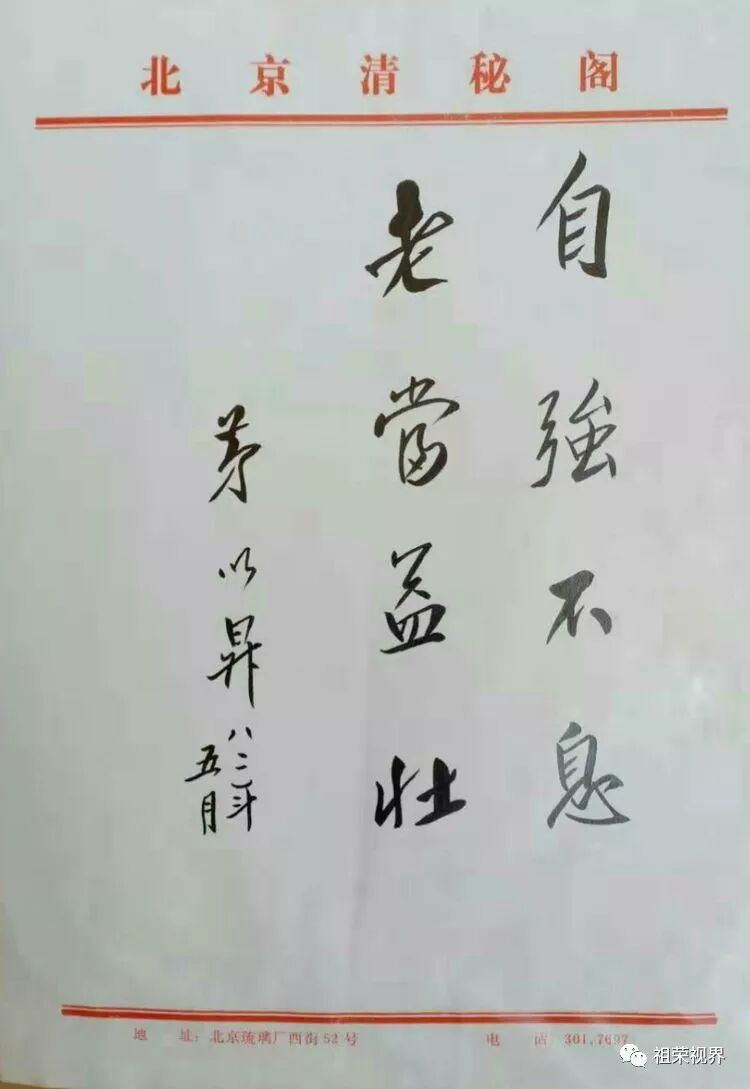 北京清秘阁
自強不息
老當益壯
茅以昇
八二年
五月
地 址：北京琉璃厂西街52号 电 话 301.7697
祖荣视界